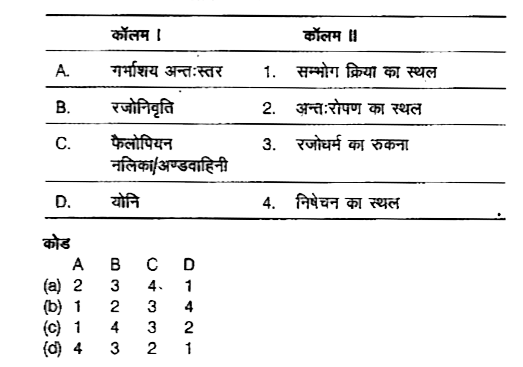 कॉलम I कॉलम II
A. गर्भाशय अन्तःस्तर 1. सम्भोग क्रिया का स्थल
B. रजोनिवृति 2. अन्तःरोपण का स्थल
C. फैलोपियन 3. रजोधर्म का रुकना
नलिका/अण्डवाहिनी
D. योनि 4. निषेचन का स्थल
कोड
A B C D
(a) 2 3 4 1
(b) 1 2 3 4
(c) 1 4 3 2
(d) 4 3 2 1